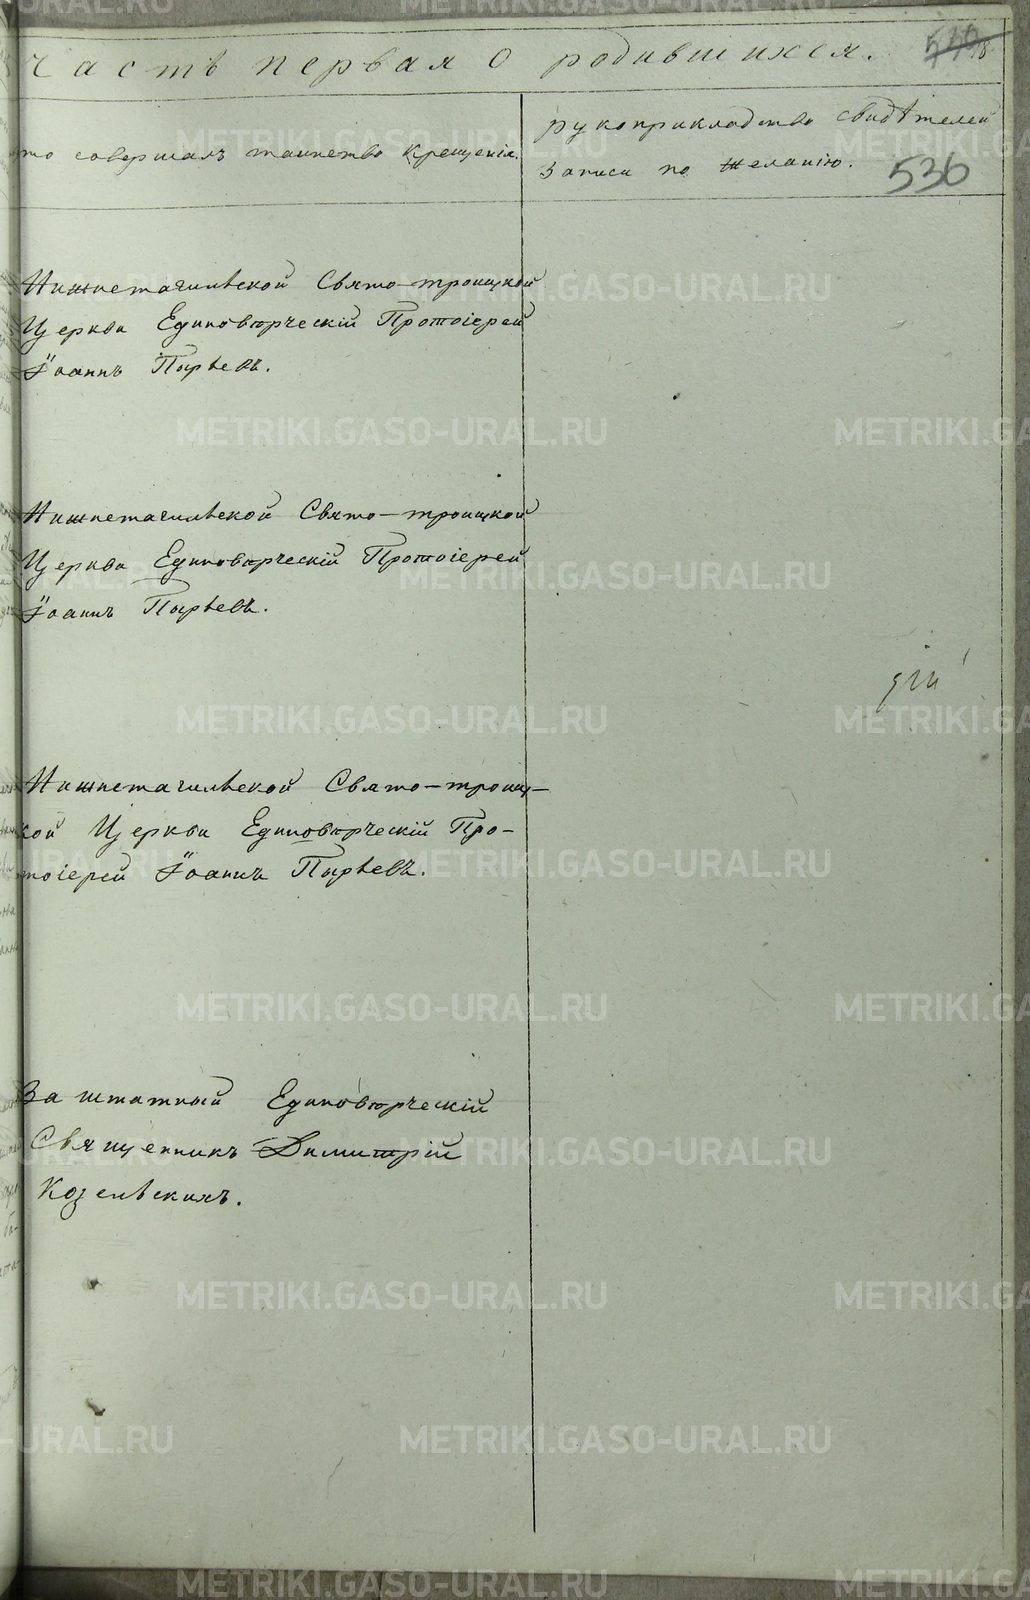 Часть первая о родившихся.
536
то совершалъ таинство крещенія.
рукоприкладство свидѣтелей
записи по желанію.
Нижнетагильской Свято-троицкой
Церкви Единовѣрческій Протоіерей
Іоаннъ Пырьевъ.
Нижнетагильской Свято-троицкой
Церкви Единовѣрческій Протоіерей
Іоаннъ Пырьевъ.
Нижнетагильской Свято-троиц-
кой Церкви Единовѣрческій Про-
тоіерей Іоаннъ Пырьевъ.
Заштатный Единовѣрческій
Священникъ Димитрій
Козельскихъ.
METRIKI.GASO-URAL.RU